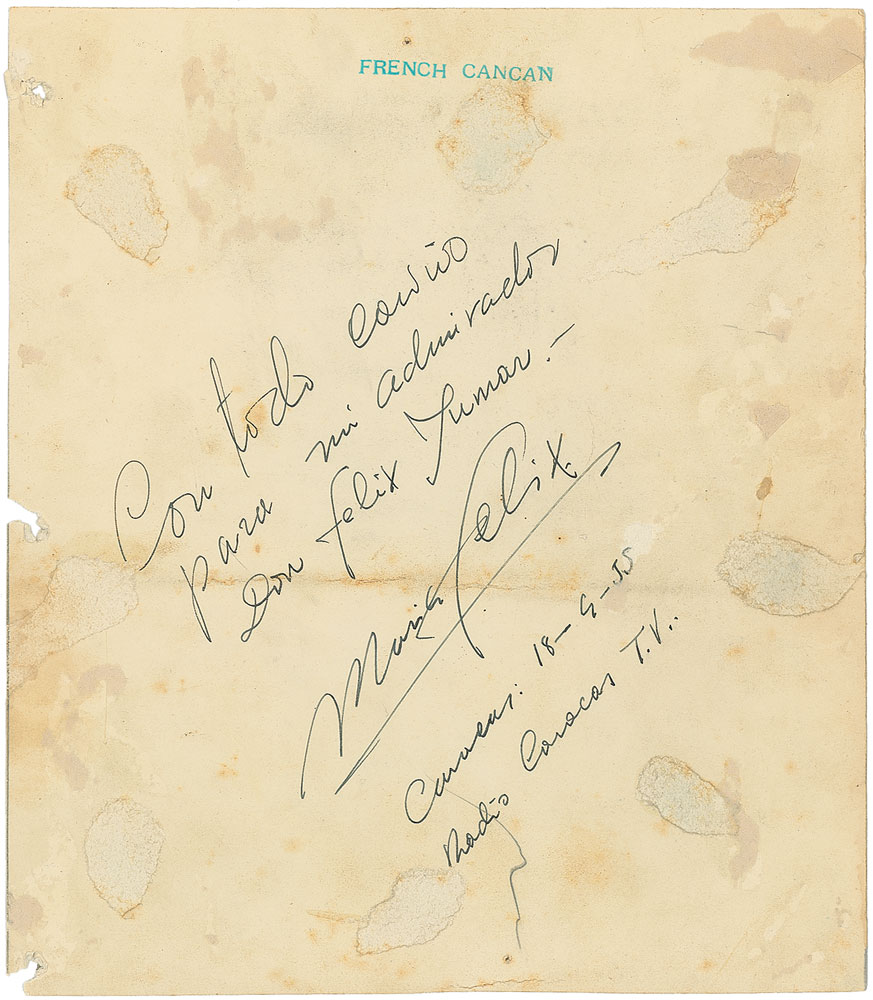 FRENCH CANCAN
Con todo cariño
para mi admirador
Don Felix Tumar.-
María Felix.
Caracas: 18-4-55
Radio Caracas T.V..